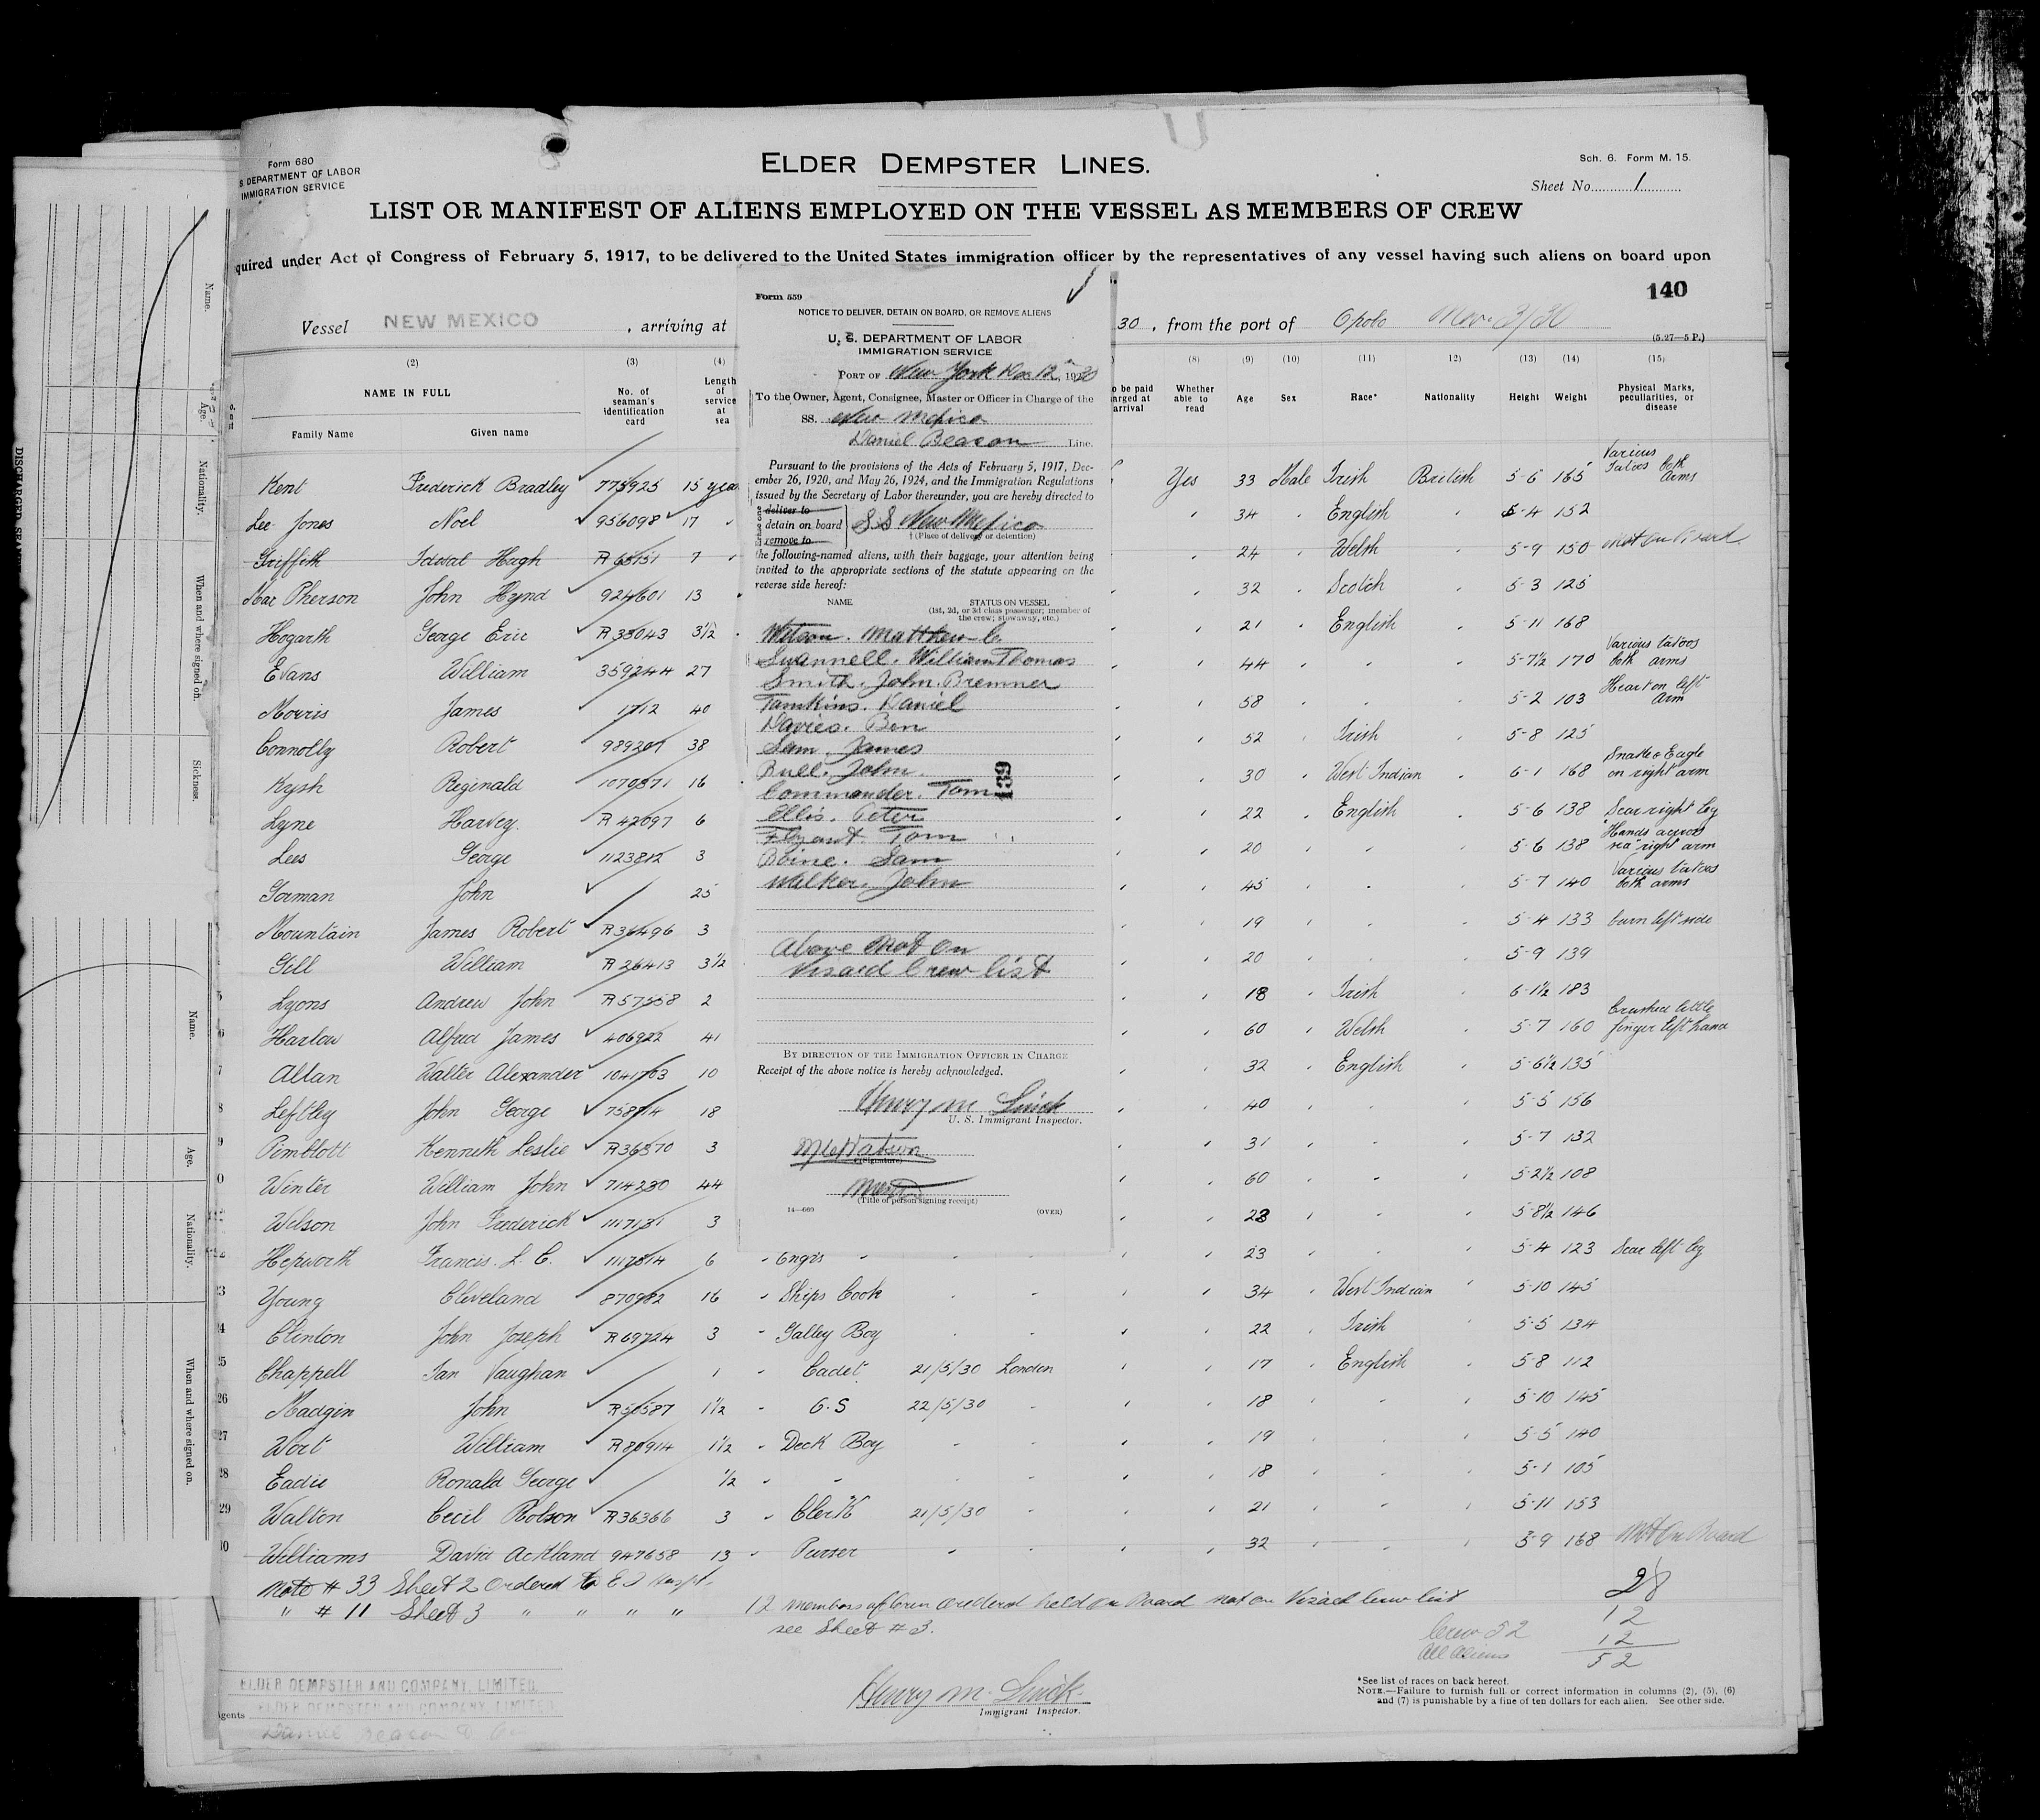 Form 680
S DEPARTMENT OF LABOR
IMMIGRATION SERVICE
ELDER DEMPSTER LINES.
Sch. 6. Form M. 15.
Sheet No. 1
LIST OR MANIFEST OF ALIENS EMPLOYED ON THE VESSEL AS MEMBERS OF CREW
quired under Act of Congress of February 5, 1917, to be delivered to the United States immigration officer by the representatives of any vessel having such aliens on board upon
140
Vessel NEW MEXICO, arriving at
30, from the port of Opobo Nov. 3/30
(5.27—5 P.)
(2) (3) (4) (8) (9) (10) (11) 12) (13) (14) (15)
NAME IN FULL
Family Name Given name
No. of seaman's identification card
Length of service at sea
o be paid arged at arrival
Whether able to read
Age Sex Race* Nationality Height Weight
Physical Marks, peculiarities, or disease
Kent Frederick Bradley 775925 15 years Yes 33 Male Irish British 5-6 165 Various Tatoos both Arms
Lee-Jones Noel 956098 17 34 English 5-4 152
Griffith Idwal Hugh R 65151 7 24 Welsh 5-9 150 Not On Board
MacPherson John Hynd 924601 13 32 Scotch 5-3 125
Hogarth George Eric R 38043 3½ 21 English 5-11 168
Evans William 359244 27 44 5-7½ 170 Various tatoos both arms
Morris James 1712 40 58 5-2 103 Heart on left Arm
Connolly Robert 989207 38 52 Irish 5-8 125
Kysh Reginald 1070871 16 30 West Indian 6-1 168 Snake & Eagle on right arm
Lyne Harvey R 42097 6 22 English 5-6 138 Scar right leg
Lees George 1123812 3 20 5-6 138 "Hands across sea" right arm
Gorman John 25 45 5-7 140 Various tatoos both arms
Mountain James Robert R 36496 3 19 5-4 133 burn left side
Gill William R 26413 3½ 20 5-9 139
Lyons Andrew John R 57558 2 18 Irish 6-1½ 183
Harlow Alfred James 406922 41 60 Welsh 5-7 160 Crushed little finger left hand
Allan Walter Alexander 1041703 10 32 English 5-6½ 135
Leftley John George 758714 18 40 5-5 156
Pimblott Kenneth Leslie R36870 3 31 5-7 132
Winter William John 714230 44 60 5-2½ 108
Wilson John Frederick 1117131 3 23 5-8½ 146
Hepworth Francis. L. C. 1117814 6 Engrs 23 5-4 123 Scar left leg
23 Young Cleveland 870982 16 Ships Cook 34 West Indian 5-10 145
24 Clinton John Joseph R 69724 3 Galley Boy 22 Irish 5-5 134
25 Chappell Ian Vaughan 1 Cadet 21/5/30 London 17 English 5-8 112
26 Madgin John R50587 1½ O.S 22/5/30 18 5-10 145
27 Wort William R 80914 1½ Deck Boy 19 5-5 140
28 Eadie Ronald George ½ 18 5-1 105
29 Walton Cecil Robson R36366 3 Clerk 21/5/30 21 5-11 153
30 Williams David Ackland 947658 13 Purser 32 5-9 168 Not On Board
Note # 33 Sheet 2 ordered to E I Hosptl.
" # 11 Sheet 3 " " " "
12 members of Crew ordered held on Board not on Visaed Crew list
see Sheet # 3.
28
12
12
52
Crew 52
All Aliens
ELDER DEMPSTER AND COMPANY, LIMITED.
ELDER DEMPSTER AND COMPANY, LIMITED
gents
Daniel Beacon
Henry M.
Immigrant Inspector.
*See list of races on back hereof.
NOTE.—Failure to furnish full or correct information in columns (2), (5), (6)
and (7) is punishable by a fine of ten dollars for each alien. See other side.
Form 559
NOTICE TO DELIVER, DETAIN ON BOARD, OR REMOVE ALIENS
U. S. DEPARTMENT OF LABOR
IMMIGRATION SERVICE
PORT OF New York Dec 12, 1930
To the Owner, Agent, Consignee, Master or Officer in Charge of the
SS. New Mexico
Daniel Beacon Line.
Pursuant to the provisions of the Acts of February 5, 1917, Dec-
ember 26, 1920, and May 26, 1924, and the Immigration Regulations
issued by the Secretary of Labor thereunder, you are hereby directed to
deliver to
detain on board
remove to
SS New Mexico
† (Place of delivery or detention)
the following-named aliens, with their baggage, your attention being
invited to the appropriate sections of the statute appearing on the
reverse side hereof:
NAME STATUS ON VESSEL
(1st, 2d, or 3d class passenger; member of
the crew; stowaway, etc.)
Watson. Matthew C.
Swannell. William Thomas
Smith. John Bremner
Tamkins. Daniel
Davies. Ben
Sam. James
Bull. John
Commander. Tom
139
Ellis. Peter
Tom
Boine. Sam
Walker. John
Above not on
Visaed Crew list
BY DIRECTION OF THE IMMIGRATION OFFICER IN CHARGE
Receipt of the above notice is hereby acknowledged.
Henry M
U. S. Immigrant Inspector.
M C Watson
(Signature)
(Title of person signing receipt)
14—669
(OVER)
Name.
Age.
Nationality.
When and where signed on.
Sickness.
DISCHARGED SEAMEN
Name.
Age.
Nationality.
When and where signed on.